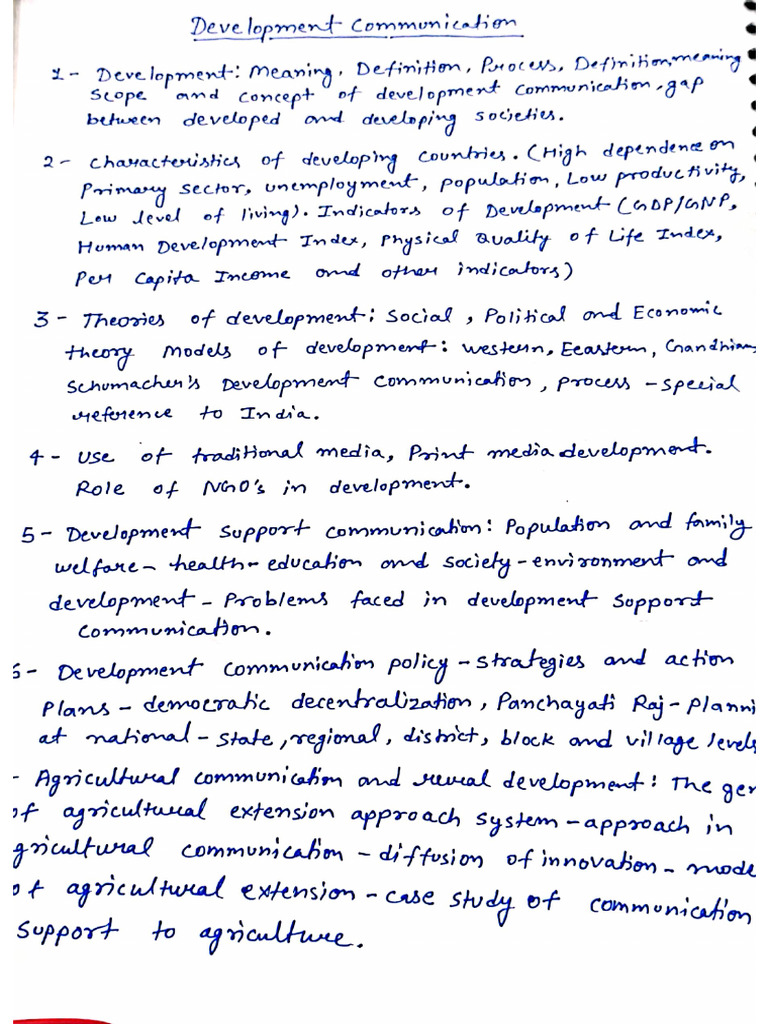 Development Communication
1- Development: Meaning, Definition, Process, Definition, meaning
Scope and concept of development communication, gap
between developed and developing societies.
2- Characteristics of developing countries. (High dependence on
Primary sector, unemployment, population, Low productivity,
Low level of living). Indicators of Development (GDP/GNP,
Human Development Index, Physical Quality of Life Index,
Per Capita Income and other indicators)
3- Theories of development: Social, Political and Economic
theory Models of development: Western, Eeastern, Gandhian
Schumacher's Development Communication, process - special
reference to India.
4- Use of traditional media, Print media development.
Role of NGO's in development.
5- Development Support communication: Population and family
welfare - health - education and society - environment and
development - Problems faced in development support
communication.
6- Development communication policy - strategies and action
Plans - democratic decentralization, Panchayati Raj - Planni
at national - state, regional, district, block and village levels
- Agricultural communication and rural development: The gen
of agricultural extension approach system - approach in
gricultural communication - diffusion of innovation - mode
of agricultural extension - case study of communication
support to agriculture.